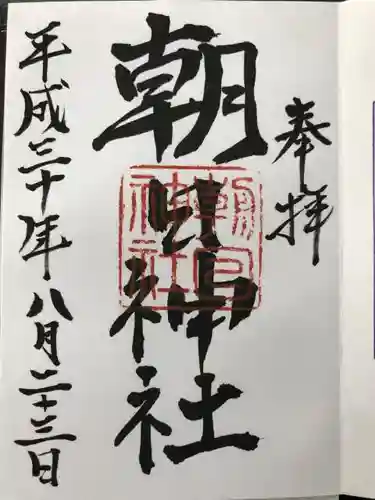 奉拝
朝日神社
朝日神社
平成三十年八月二十三日